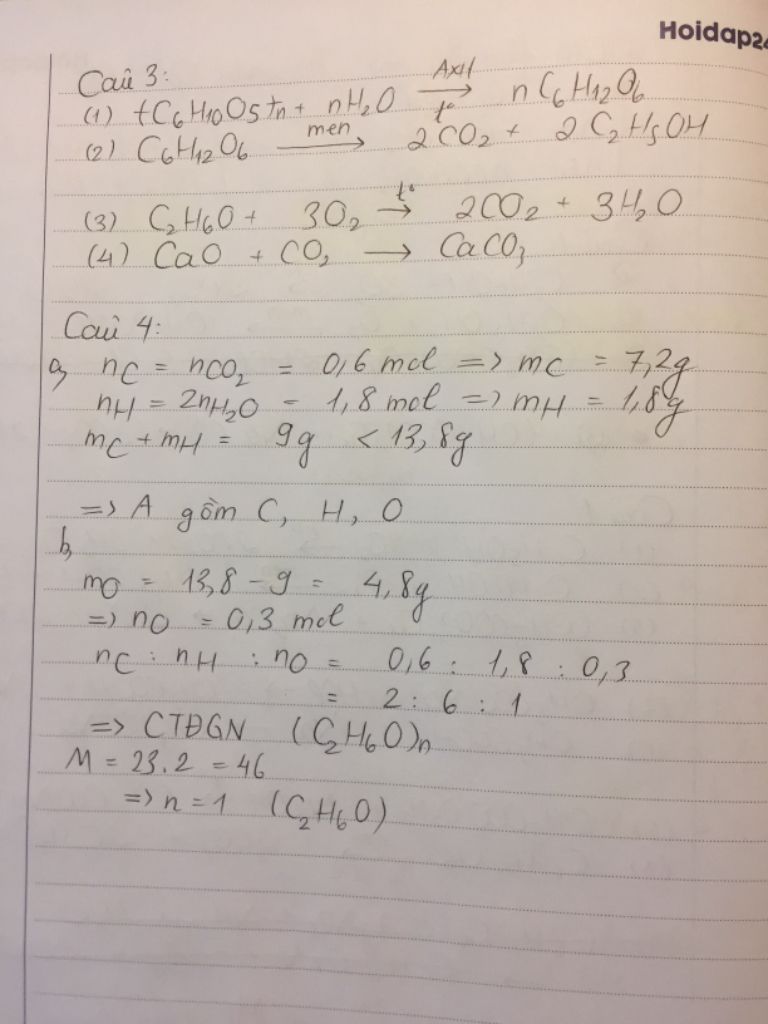 Hoidap24
Câu 3:
(1) (C6H10O5)n + nH2O Axit t° → nC6H12O6
(2) C6H12O6 men → 2CO2 + 2C2H5OH
(3) C2H6O + 3O2 t° → 2CO2 + 3H2O
(4) CaO + CO2 → CaCO3
Câu 4:
a, nC = nCO2 = 0,6 mol => mC = 7,2g
nH = 2nH2O = 1,8 mol => mH = 1,8g
mC + mH = 9g < 13,8g
=> A gồm C, H, O
b,
mO = 13,8 - 9 = 4,8g
=> nO = 0,3 mol
nC : nH : nO = 0,6 : 1,8 : 0,3
= 2 : 6 : 1
=> CTĐGN (C2H6O)n
M = 23.2 = 46
=> n = 1 (C2H6O)